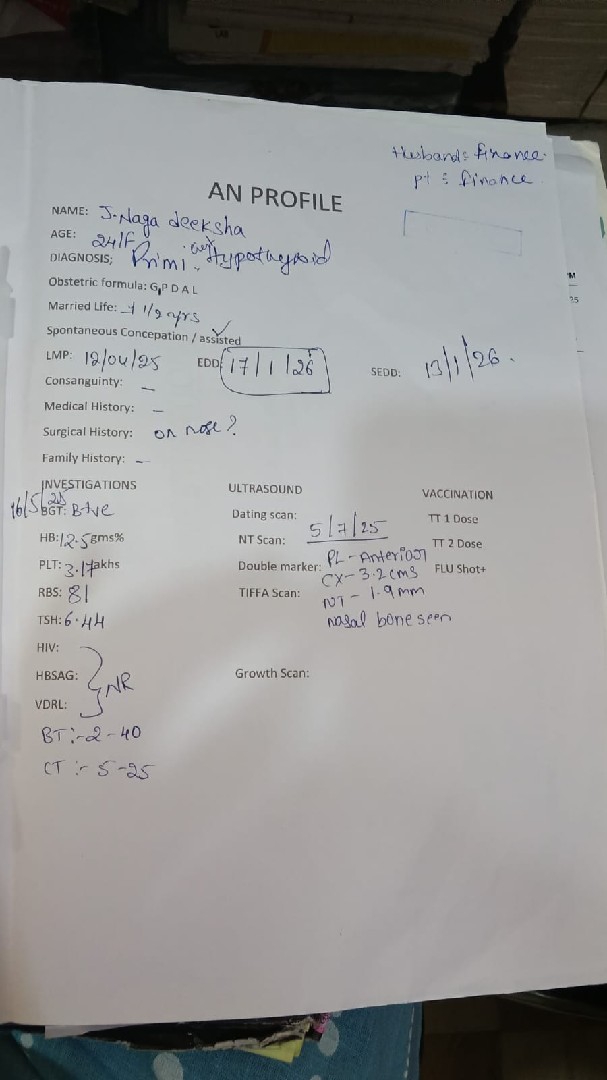 Husband:- finance.
pt : finance
AN PROFILE
NAME: J. Naga deeksha
AGE: 24/F
DIAGNOSIS; Primi Hypothyroid
Obstetric formula: G,P D A L
Married Life: 1 1/2 yrs
Spontaneous Concepation / assisted ✓
LMP: 12/04/25 EDD: 17/1/26 SEDD: 13/1/26.
Consanguinty: –
Medical History: –
Surgical History: on nose?
Family History: –
INVESTIGATIONS ULTRASOUND VACCINATION
16/5/25
BGT: B+ve Dating scan: TT 1 Dose
HB: 12.5 gms% NT Scan: 5/7/25 TT 2 Dose
PLT: 3.17 akhs Double marker: PL - Anterior FLU Shot+
CX - 3.2 cms
RBS: 81 TIFFA Scan: NT - 1.9 mm
TSH: 6.44 nasal bone seen
HIV:
HBSAG: NR Growth Scan:
VDRL:
BT :- 2 - 40
CT :- 5 - 25